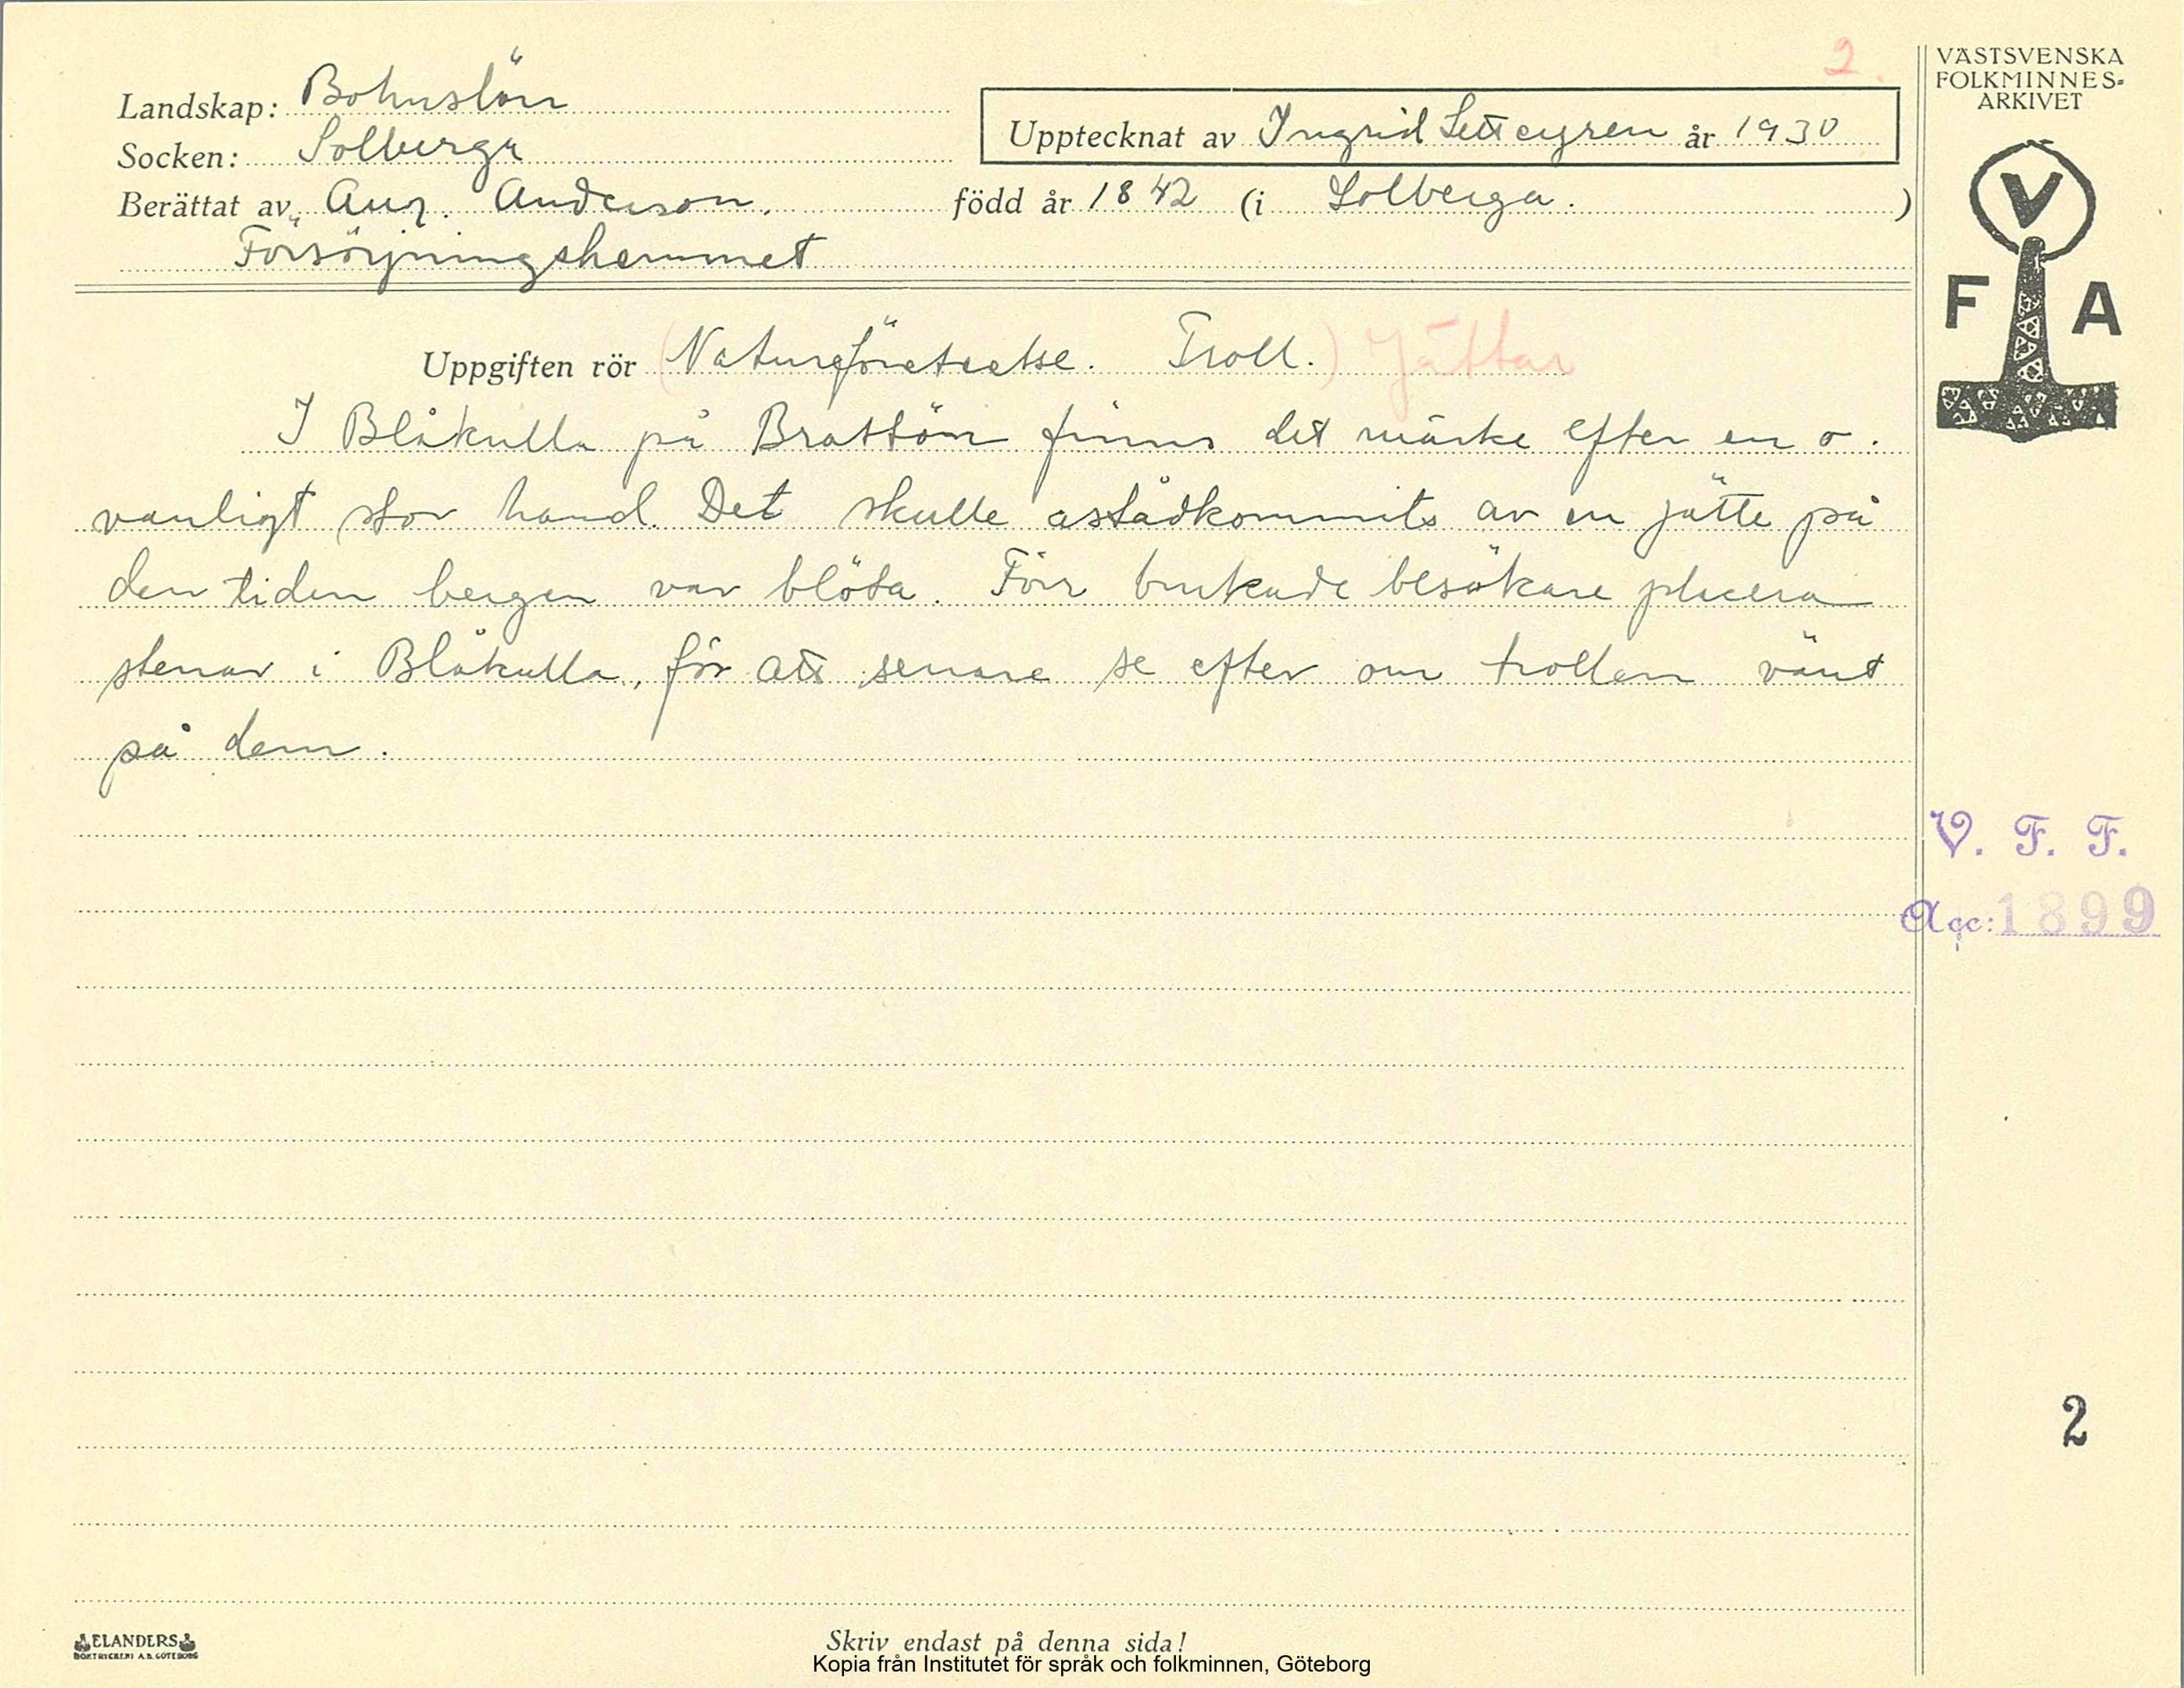 2.
VÄSTSVENSKA
FOLKMINNES-
ARKIVET
V
F A
Landskap: Bohuslän
Socken: Solberga
Upptecknat av Ingrid år 1930
Berättat av Aug. Anderson. född år 1842 (i Solberga.)
Försörjningshemmet
Uppgiften rör (Natureföreteelse. Troll.) Jättar
I Blåkulla på Brattön finns det märke efter en o-
vanligt stor hand. Det skulle astådkommits av en jätte på
den tiden bergen var blöta. Förr brukade besökare placera
stenar i Blåkulla, för att senare se efter om trollen vänt
på dem.
V. F. F.
Acc: 1899
2
ELANDERS
BOKTRYCKERI A.B. GÖTEBORG
Skriv endast på denna sida!
Kopia från Institutet för språk och folkminnen, Göteborg